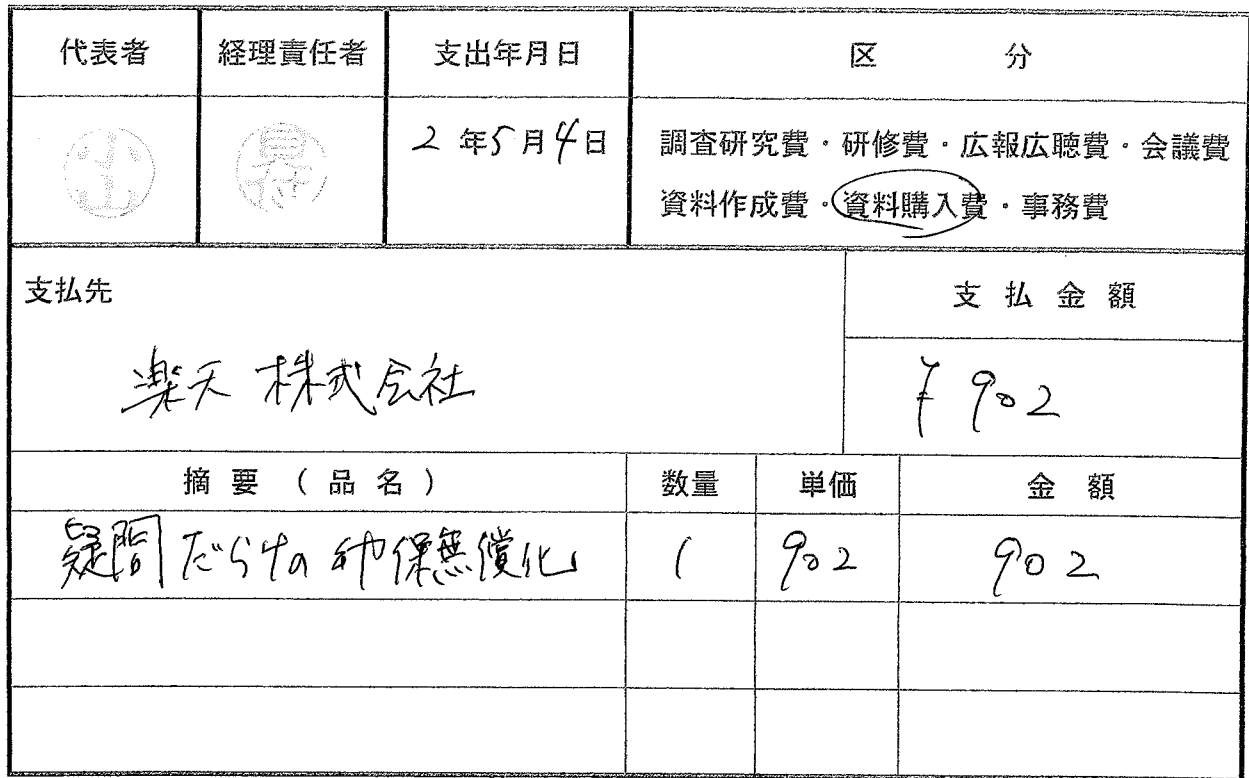 代表者 経理責任者 支出年月日 区 分
2年5月4日 調査研究費・研修費・広報広聴費・会議費
資料作成費・資料購入費・事務費
支払先 支払金額
楽天株式会社 ¥902
摘要(品名) 数量 単価 金額
疑問だらけの幼保無償化 1 902 902